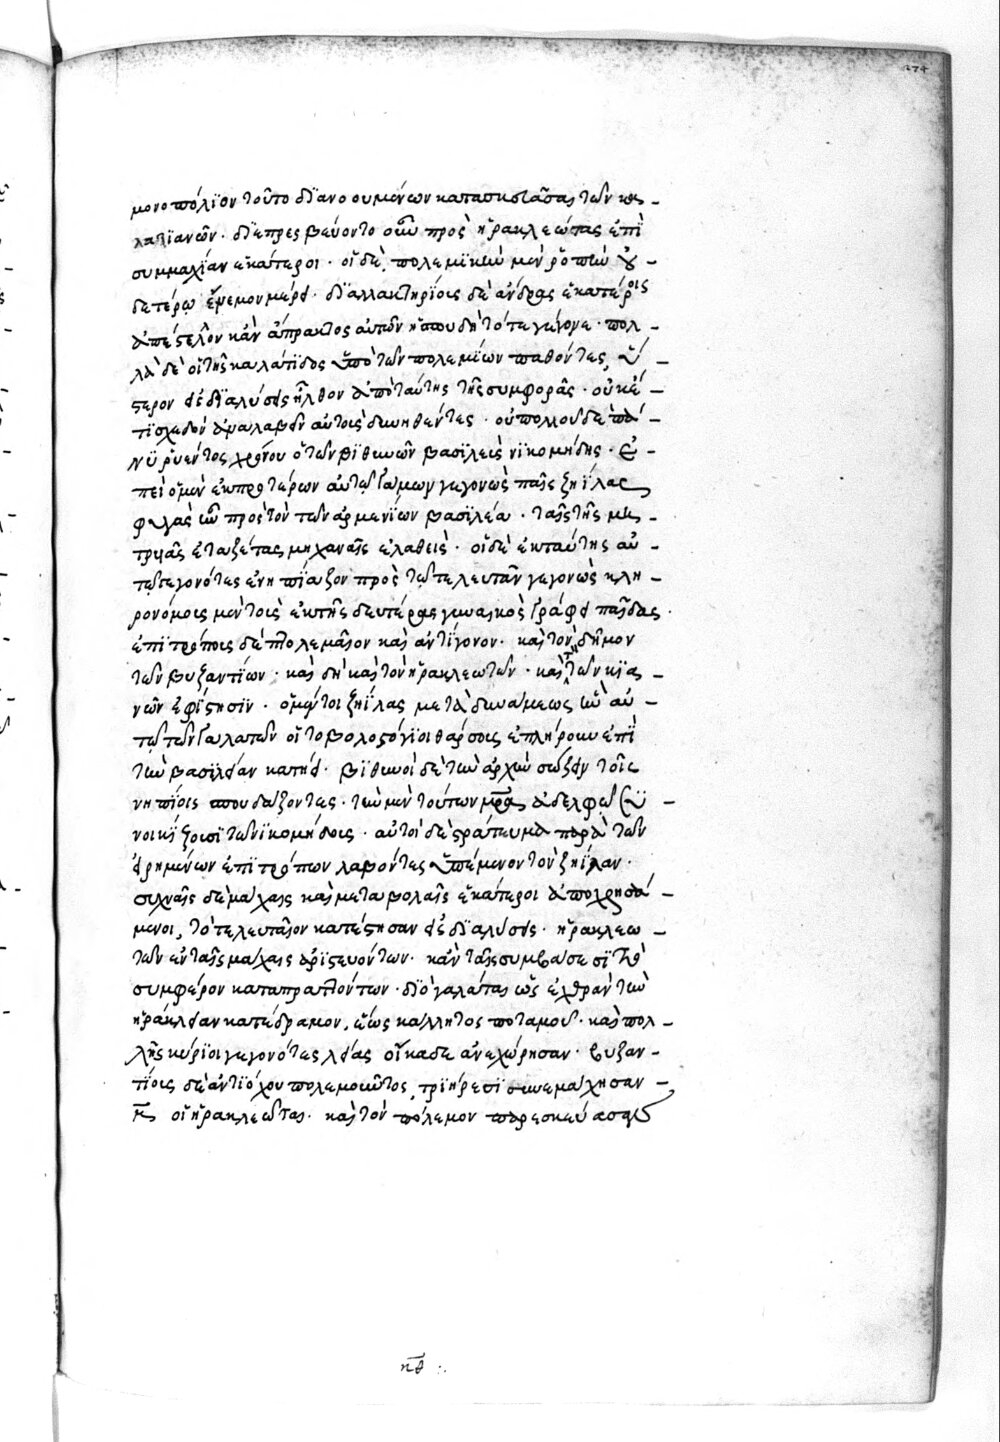 274
μονοπώλιον τοῦτο διανοουμένων κατασκευάσαι τῶν κα-
λατιανῶν· διεπρεσβεύοντο οὖν πρὸς ἡρακλεώτας ἐπὶ
συμμαχίαν ἑκάτεροι· οἱ δὲ, πολεμικὴν μὲν ῥοπὴν οὐ-
δετέρῳ ἔνεμον μέρει· διαλλακτηρίους δὲ ἄνδρας ἑκατέροις
ἀπέστελλον κἂν ἄπρακτος αὐτῶν ἡ σπουδὴ τότε γέγονε· πολ-
λὰ δὲ οἱ τῆς καλάτιδος ὑπὸ τῶν πολεμίων παθόντες, ὕ-
στερον εἰς διαλύσεις ἦλθον ἀπὸ ταύτης τῆς συμφορᾶς· οὐκέ-
τι σχεδὸν ἀναλαβεῖν αὑτοὺς δυνηθέντες· οὐ πολλοῦ δὲ πά-
νυ ῥυέντος χρόνου ὁ τῶν βιθυνῶν βασιλεὺς νικομήδης· ἐ-
πεὶ ὁ μὲν ἐκ προτέρων αὐτῷ γάμων γεγονὼς παῖς ζηίλας
φυγὰς ἦν πρὸς τὸν τῶν ἀρμενίων βασιλέα· ταῖς τῆς μη-
τρυιᾶς ἐταζέτας μηχαναῖς ἐλαθεὶς· οἱ δὲ ἐκ ταύτης αὐ-
τῷ γεγονότες ἐνηπίαζον πρὸς τῷ τελευτᾶν γεγονὼς κλη-
ρονόμους μὲν τοὺς ἐκ τῆς δευτέρας γυναικὸς γράφει παῖδας·
ἐπιτρόπους δὲ πτολεμαῖον καὶ ἀντίγονον· καὶ τὸν δῆμον
τῶν βυζαντίων· καὶ δὴ καὶ τὸν ἡρακλεωτῶν· καὶ τὴν τῶν κια-
νῶν ἐφίστησιν· ὁ μέντοι ζηίλας μετὰ δυνάμεως ἣν αὐ-
τῷ τῶν γαλατῶν οἱ τοβολοστόγιοι θάρσους ἐπλήρουν ἐπὶ
τὴν βασιλείαν κατῄει· βιθυνοὶ δὲ τὴν ἀρχὴν σώζειν τοῖς
νηπίοις σπουδάζοντες· τὴν μὲν τούτων μητέρα ἀδελφῷ συ-
νοικίζουσι τῷ νικομήδους· αὐτοὶ δὲ στράτευμα παρὰ τῶν
εἰρημένων ἐπιτρόπων λαβόντες ὑπέμενον τὸν ζηίλαν·
συχναῖς δὲ μάχαις καὶ μεταβολαῖς ἑκάτεροι ἀποχρησά-
μενοι, τὸ τελευταῖον κατέστησαν εἰς διαλύσεις· ἡρακλεω-
τῶν ἐν ταῖς μάχαις ἀριστευόντων· κἀν ταῖς συμβάσεσι τὸ
συμφέρον καταπραττόντων· διὸ γαλάται ὡς ἐχθρὰν τὴν
ἡράκλειαν κατέδραμον, ἕως κάλλητος ποταμοῦ· καὶ πολ-
λῆς κύριοι γεγονότες λείας οἴκαδε ἀνεχώρησαν· βυζαν-
τίοις δὲ ἀντιόχου πολεμοῦντος, τριήρεσι συνεμάχησαν
μʹ οἱ ἡρακλεῶται· καὶ τὸν πόλεμον παρεσκεύασαν
κθ :·